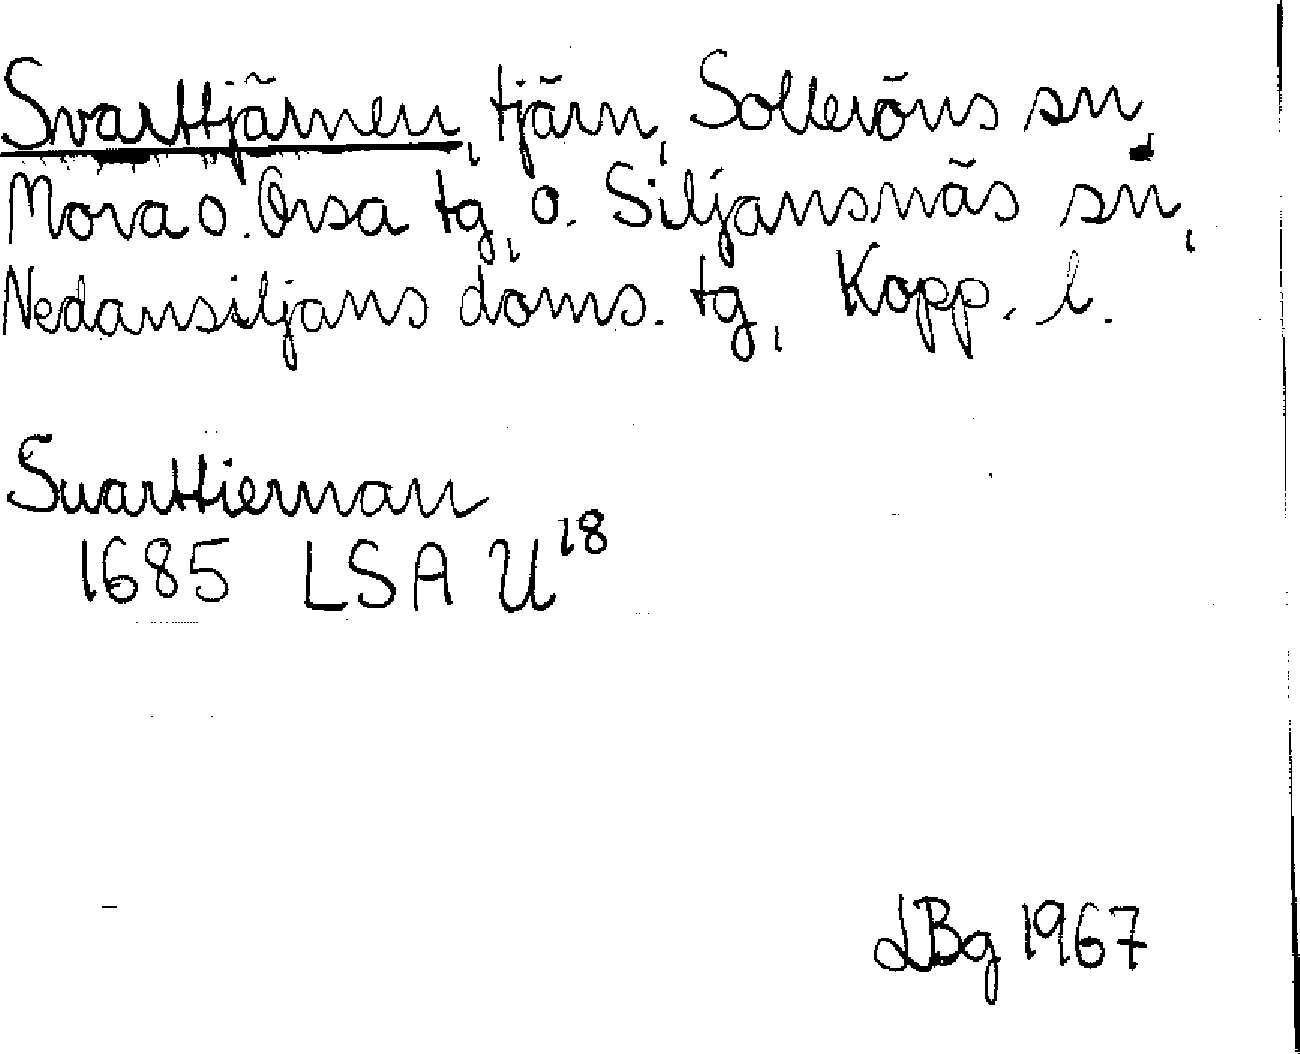 Svarttjärnen, tjärn, Solleröns sn,
Mora o. Orsa tg, o. Siljansnäs sn,
Nedansiljans doms. tg, Kopp. l.
Suarttiernan
1685 LSA U18
LBg 1967